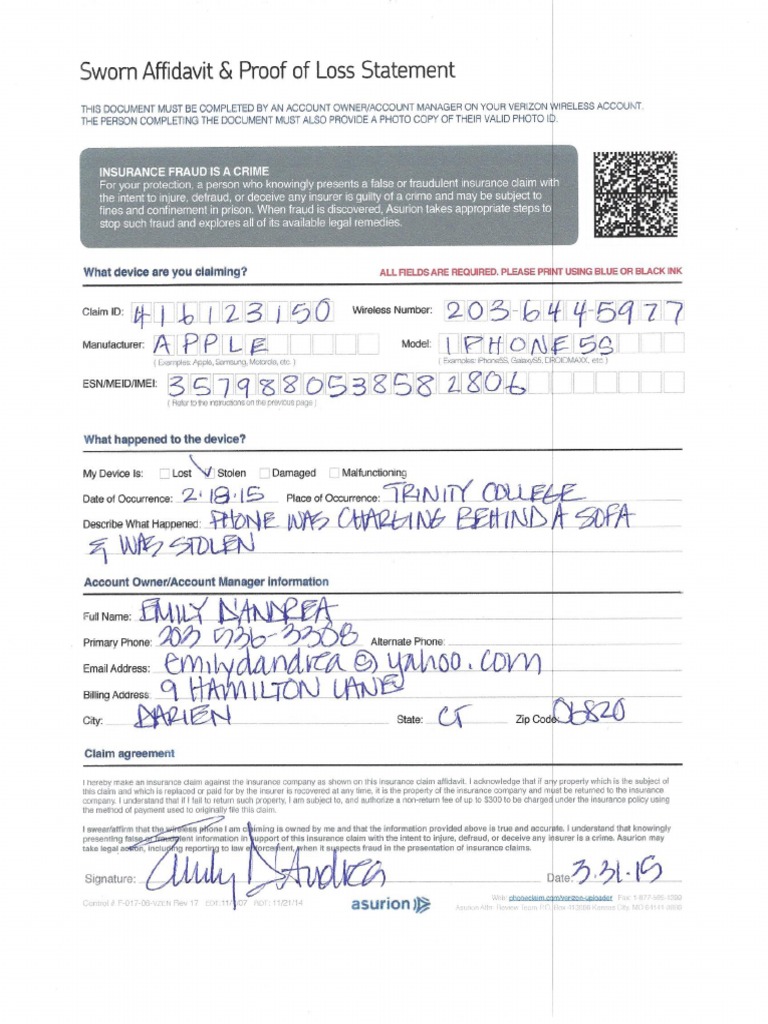 Sworn Affidavit & Proof of Loss Statement
THIS DOCUMENT MUST BE COMPLETED BY AN ACCOUNT OWNER/ACCOUNT MANAGER ON YOUR VERIZON WIRELESS ACCOUNT.
THE PERSON COMPLETING THE DOCUMENT MUST ALSO PROVIDE A PHOTO COPY OF THEIR VALID PHOTO ID.
INSURANCE FRAUD IS A CRIME
For your protection, a person who knowingly presents a false or fraudulent insurance claim with
the intent to injure, defraud, or deceive any insurer is guilty of a crime and may be subject to
fines and confinement in prison. When fraud is discovered, Asurion takes appropriate steps to
stop such fraud and explores all of its available legal remedies.
What device are you claiming? ALL FIELDS ARE REQUIRED. PLEASE PRINT USING BLUE OR BLACK INK
Claim ID: 416123150 Wireless Number: 203-644-5977
Manufacturer: APPLE Model: IPHONE 5S
(Examples: Apple, Samsung, Motorola, etc.) (Examples: iPhone5S, GalaxyS5, DROIDMAXX, etc.)
ESN/MEID/IMEI: 3579880538582806
(Refer to the instructions on the previous page)
What happened to the device?
My Device Is: Lost Stolen Damaged Malfunctioning
Date of Occurrence: 2.18.15 Place of Occurrence: TRINITY COLLEGE
Describe What Happened: PHONE WAS CHARGING BEHIND A SOFA
& WAS STOLEN
Account Owner/Account Manager Information
Full Name: EMILY D'ANDREA
Primary Phone: 203 536-3308 Alternate Phone:
Email Address: emilydandrea@yahoo.com
Billing Address: 9 HAMILTON LANE
City: DARIEN State: CT Zip Code: 06820
Claim agreement
I hereby make an insurance claim against the insurance company as shown on this insurance claim affidavit. I acknowledge that if any property which is the subject of
this claim and which is replaced or paid for by the insurer is recovered at any time, it is the property of the insurance company and must be returned to the insurance
company. I understand that if I fail to return such property, I am subject to, and authorize a non-return fee of up to $300 to be charged under the insurance policy using
the method of payment used to originally file this claim.
I swear/affirm that the wireless phone I am claiming is owned by me and that the information provided above is true and accurate. I understand that knowingly
presenting false or fraudulent information in support of this insurance claim with the intent to injure, defraud, or deceive any insurer is a crime. Asurion may
take legal action, including reporting to law enforcement, when it suspects fraud in the presentation of insurance claims.
Signature: Emily D'Andrea Date: 3.31.15
Control # F-017-06-VZCN Rev 17 RDT: 11/21/14 asurion Web: phoneclaim.com/verizon-uploader